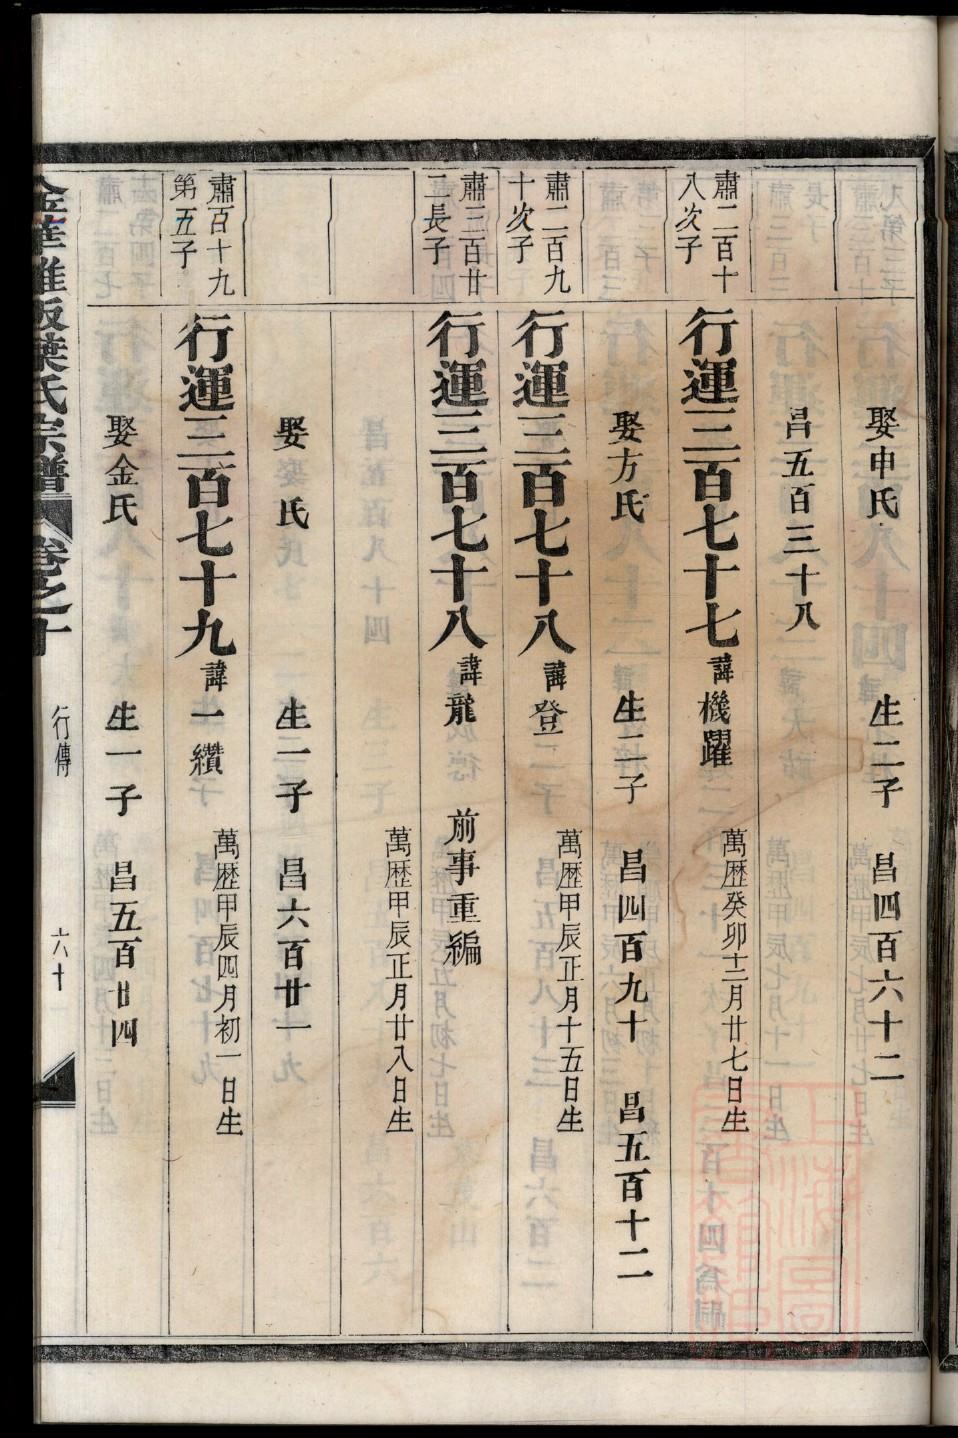 娶申氏 生二子 昌四百六十二
昌五百三十八
肅二百十八次子
行運三百七十七 諱機躍 萬歴癸卯十二月廿七日生
娶方氏 生二子 昌四百九十 昌五百十二
肅二百九十次子
行運三百七十八 諱登 萬歴甲辰正月十五日生
肅三百廿二長子
行運三百七十八 諱龍 前事重編
萬歴甲辰正月廿八日生
娶 氏 生二子 昌六百廿一
肅百十九第五子
行運三百七十九 諱一纘 萬歴甲辰四月初一日生
娶金氏 生一子 昌五百廿四
金華雅畈葉氏宗譜 卷之十 行傳 六十